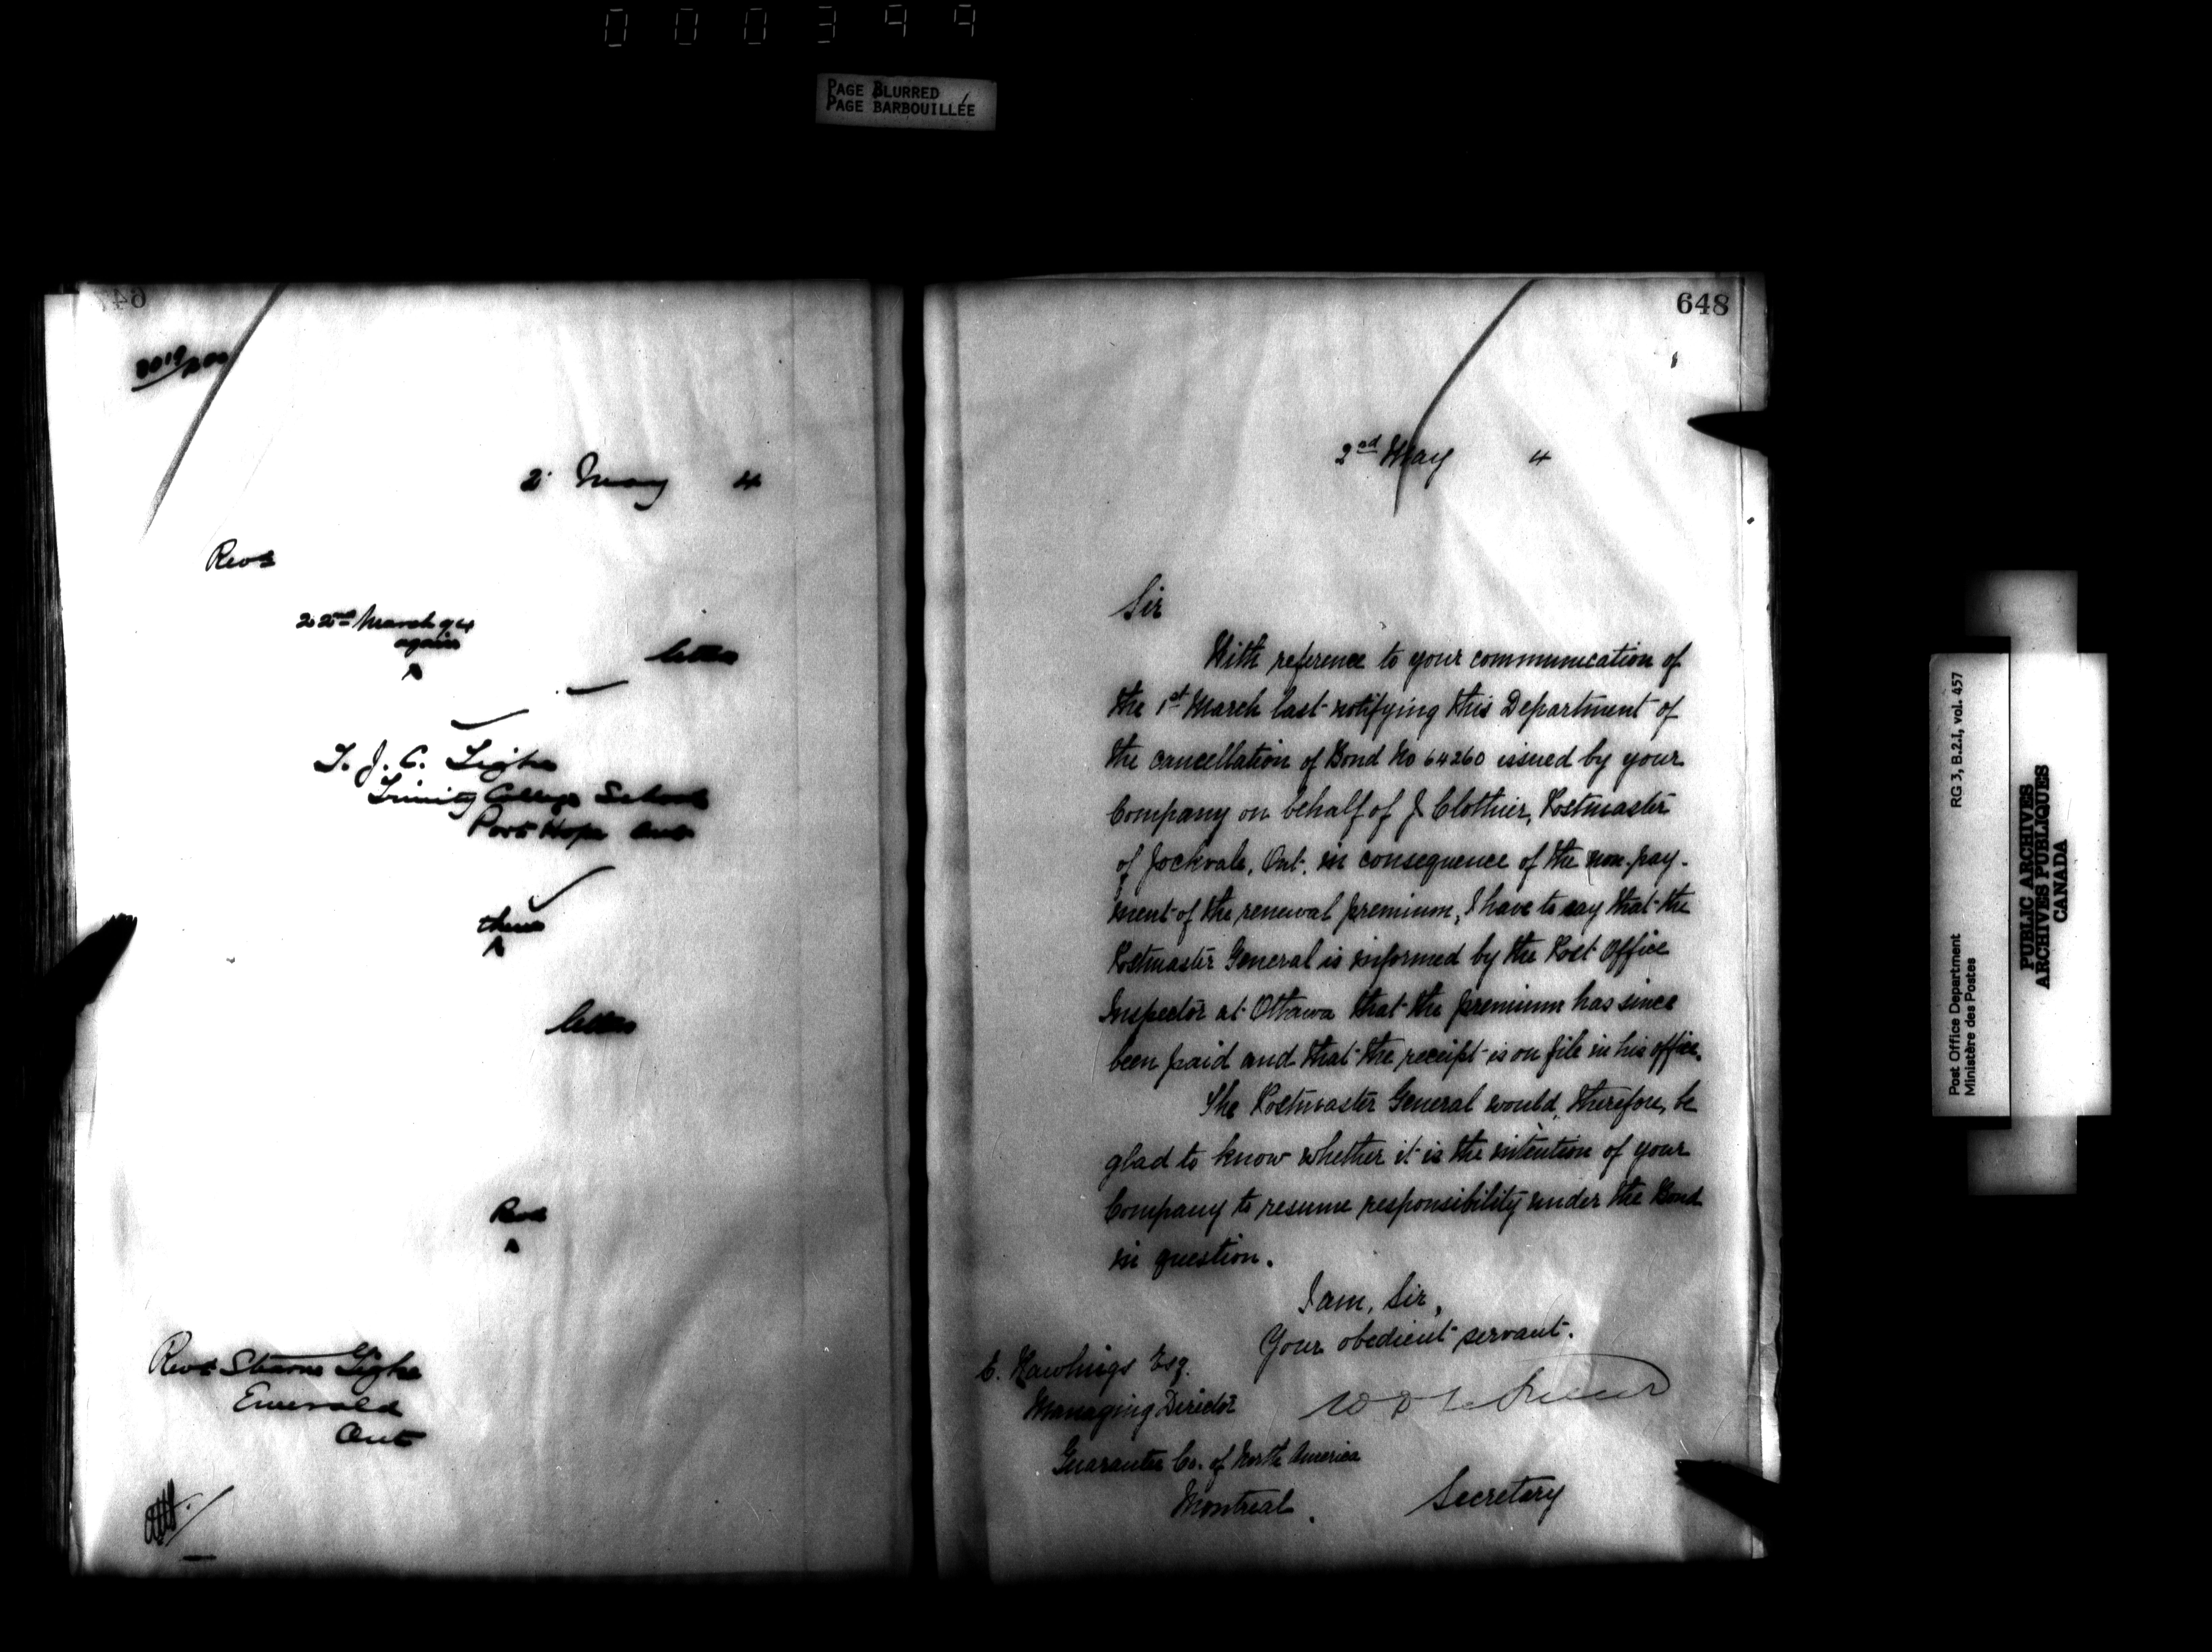 000399
PAGE BLURRED
PAGE BARBOUILLÉE
647
2 May 4
Revd
22nd March 94
again
letter
T. J. C. Tighe
Trinity College School
Port Hope Ont
letter
Revd
Revd Stearne Tighe
Emerald
Ont
648
2nd May 4
Sir
With reference to your communication of
the 1st March last notifying this Department of
the cancellation of Bond No 64260 issued by your
Company on behalf of J Clothier, Postmaster
of Jockvale, Ont. in consequence of the non-pay-
ment of the renewal premium, I have to say that the
Postmaster General is informed by the Post Office
Inspector at Ottawa that the premium has since
been paid and that the receipt is on file in his office.
The Postmaster General would, therefore, be
glad to know whether it is the intention of your
Company to resume responsibility under the Bond
in question.
I am, Sir,
Your obedient servant.
E. Rawlings Esq.
Managing Director
Guarantee Co. of North America
Montreal.
Secretary
Post Office Department
Ministère des Postes
RG 3, B.2.I, vol. 457
PUBLIC ARCHIVES
ARCHIVES PUBLIQUES
CANADA